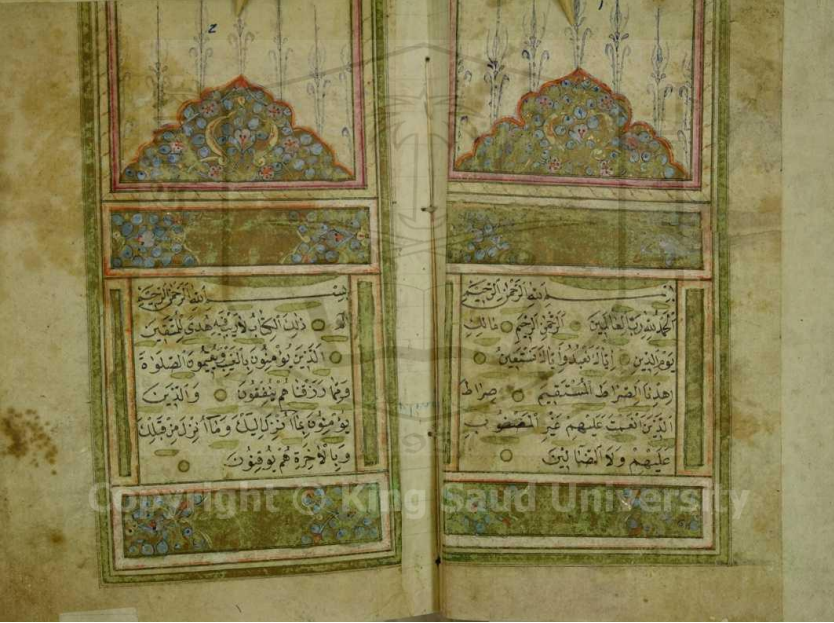 بسم الله الرحمن الرحيم
الحمد لله رب العالمين الرحمن الرحيم مالك
يوم الدين اياك نعبد واياك نستعين
اهدنا الصراط المستقيم صراط
الذين انعمت عليهم غير المغضوب
عليهم ولا الضالين
بسم الله الرحمن الرحيم
الم ذلك الكتاب لا ريب فيه هدى للمتقين
الذين يؤمنون بالغيب ويقيمون الصلوة
ومما رزقناهم ينفقون والذين
يؤمنون بما انزل اليك وما انزل من قبلك
وبالاخرة هم يوقنون
Copyright © King Saud University